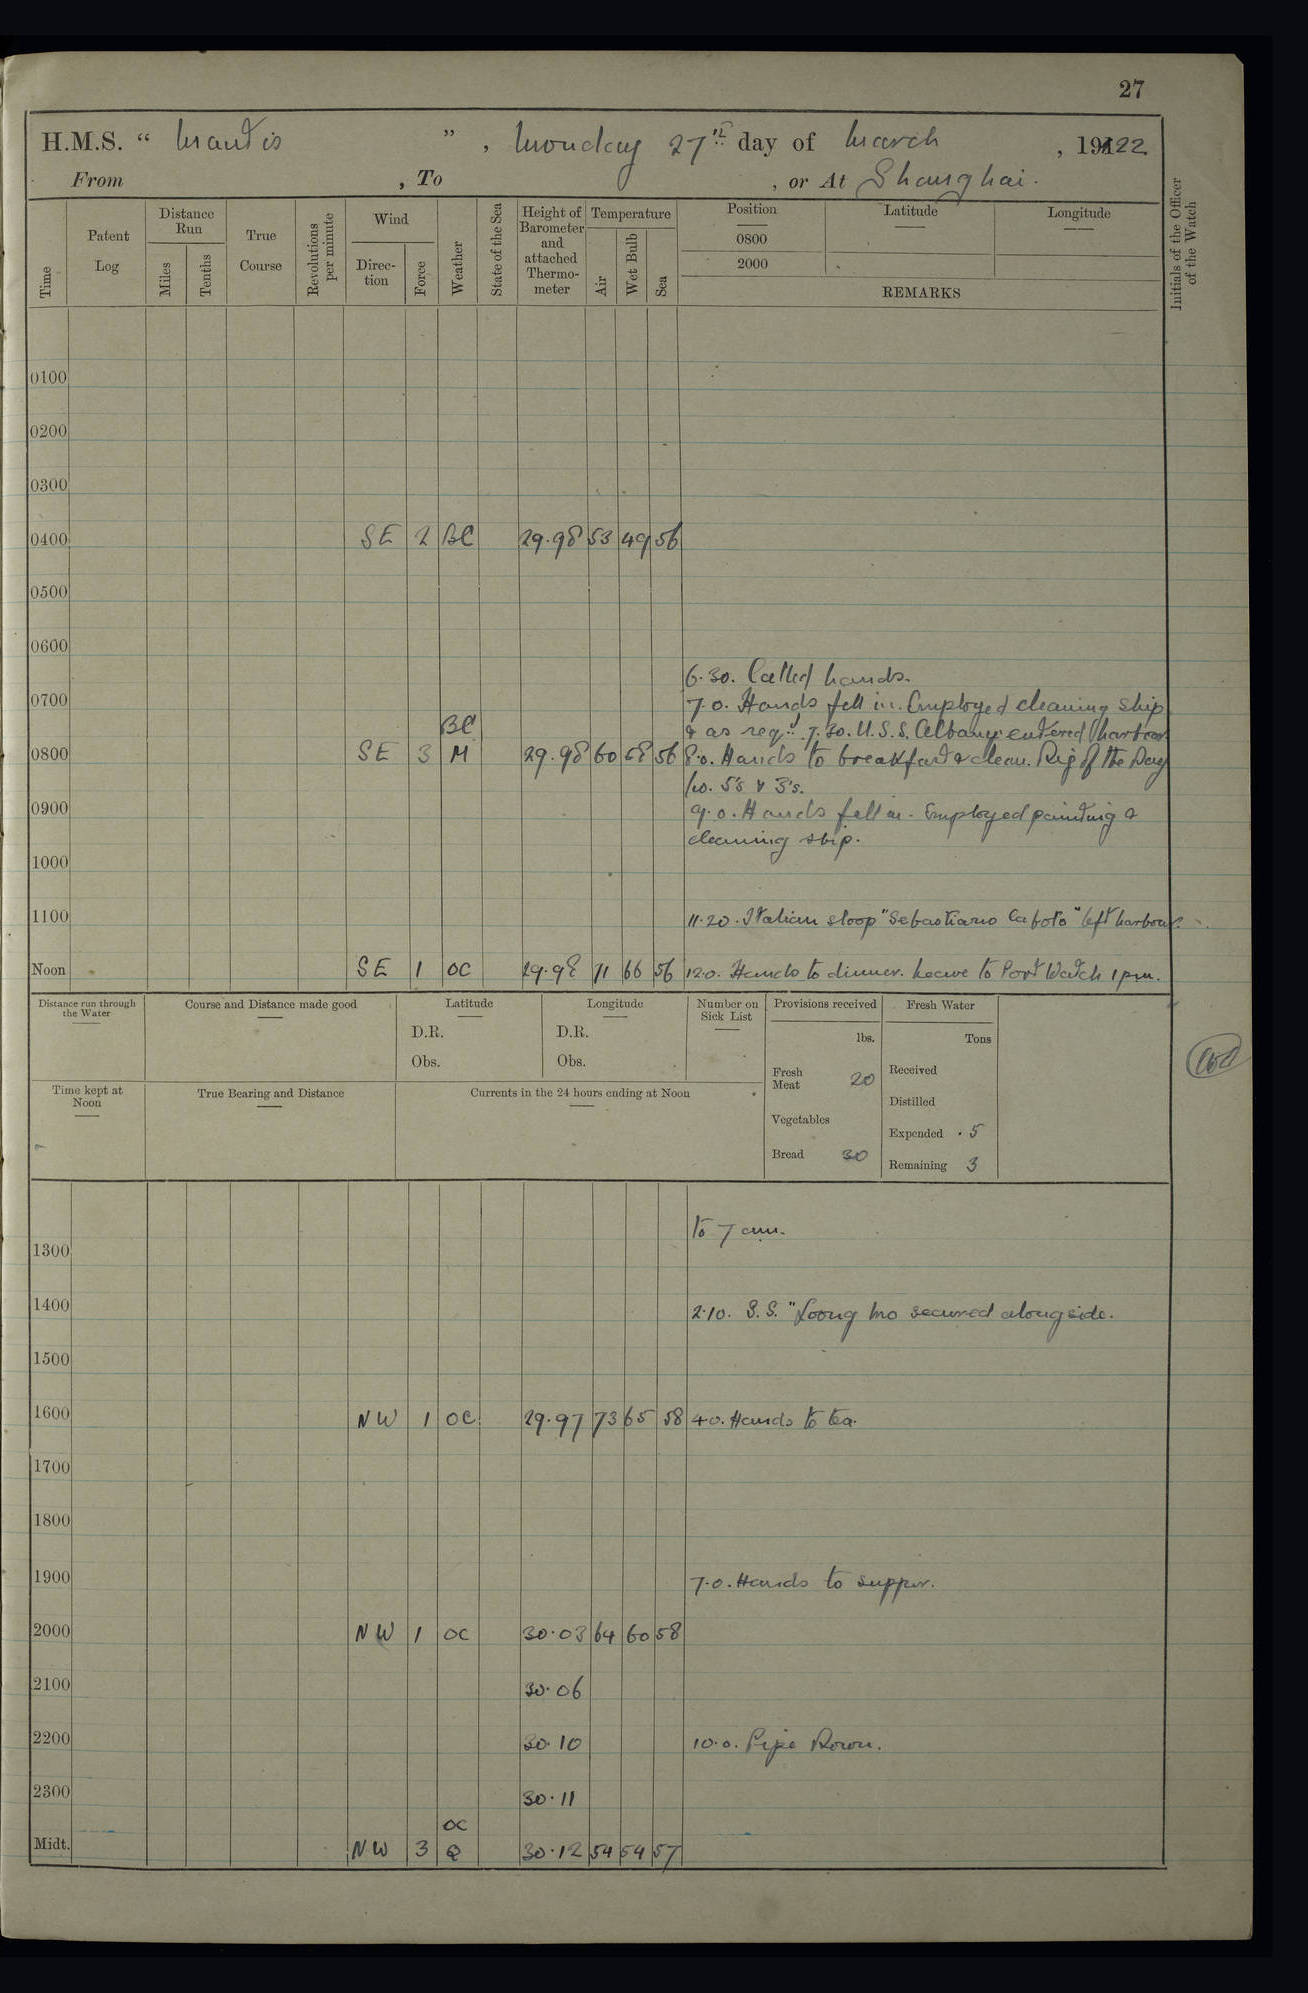 27
H.M.S. “ Mantis ” , Monday 27th day of March , 1922
From , To , or At Shanghai.
Time Patent Log Distance Run Miles Tenths True Course Revolutions per minute Wind Direc-tion Force Weather State of the Sea Height of Barometer and attached Thermo-meter Temperature Air Wet Bulb Sea Position 0800 2000 Latitude Longitude REMARKS Initials of the Officer of the Watch
0100
0200
0300
0400 SE 2 BC 29.98 53 49 56
0500
0600
6.30. Called hands.
0700 7.0. Hands fell in. Employed cleaning ship
BC & as reqd. 7.30. U.S.S. Albany entered harbour
0800 SE 3 M 29.98 60 58 56 8.0. Hands to breakfast & clean. Rig of the Day
No. 5's & 3's.
0900 9.0. Hands fell in. Employed painting &
cleaning ship.
1000
1100 11.20. Italian sloop "Sebastiano Caboto" left harbour.
Noon SE 1 OC 29.98 71 66 56 12.0. Hands to dinner. Leave to Port Watch 1 pm.
Distance run through the Water Course and Distance made good Latitude Longitude Number on Sick List Provisions received Fresh Water
D.R. D.R. lbs. Tons
Obs. Obs.
Fresh Meat 20 Received
Time kept at Noon True Bearing and Distance Currents in the 24 hours ending at Noon
Distilled
Vegetables Expended .5
Bread 30 Remaining 3
to 7 am.
1300
1400 2.10. S.S. "Loong Mo secured alongside.
1500
1600 NW 1 OC 29.97 73 65 58 4.0. Hands to tea.
1700
1800
1900 7.0. Hands to supper.
2000 NW 1 OC 30.03 64 60 58
2100 30.06
2200 30.10 10.0. Pipe Down.
2300 30.11
OC
Midt. NW 3 Q 30.12 54 54 57